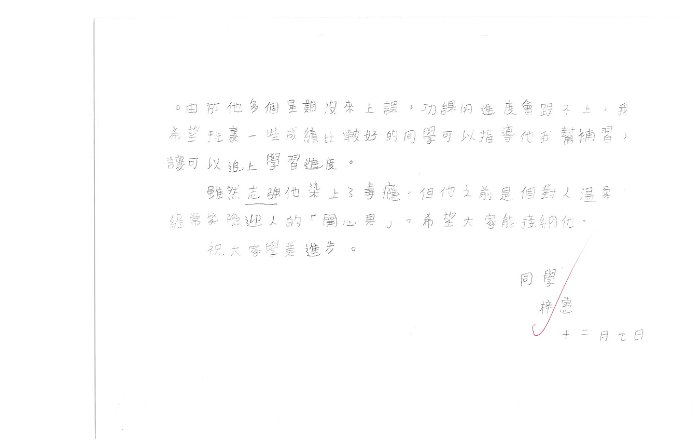 。由於他多個星期沒來上課，功課的進度會跟不上，我
希望班裏一些成績比較好的同學可以指導他和幫補習，
讓可以追上學習進度。
雖然志強他染上了毒癮，但他之前是個對人溫柔，
經常笑臉迎人的「開心果」。希望大家能接納他。
祝大家學業進步。
同學
十二月七日